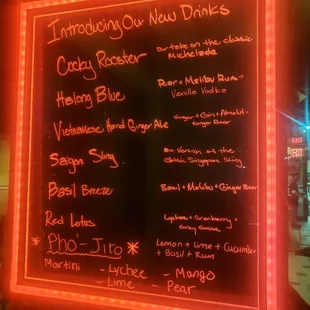 Introducing Our New Drinks
Cocky Rooster
our take on the classic
Michelada
Halong Blue
Pear + Malibu Rum +
Vanilla Vodka
Vietnamese Hand Ginger Ale
Ginger + Gin + Absolut +
Ginger Beer
Saigon Sling
our version of the
classic Singapore Sling
Basil Breeze
Basil + Malibu + Ginger Beer
Red Lotus
Lychee + Cranberry +
Pho-Jito
Lemon + Lime + Cucumber
+ Basil + Rum
Martini - Lychee - Mango
- Lime - Pear